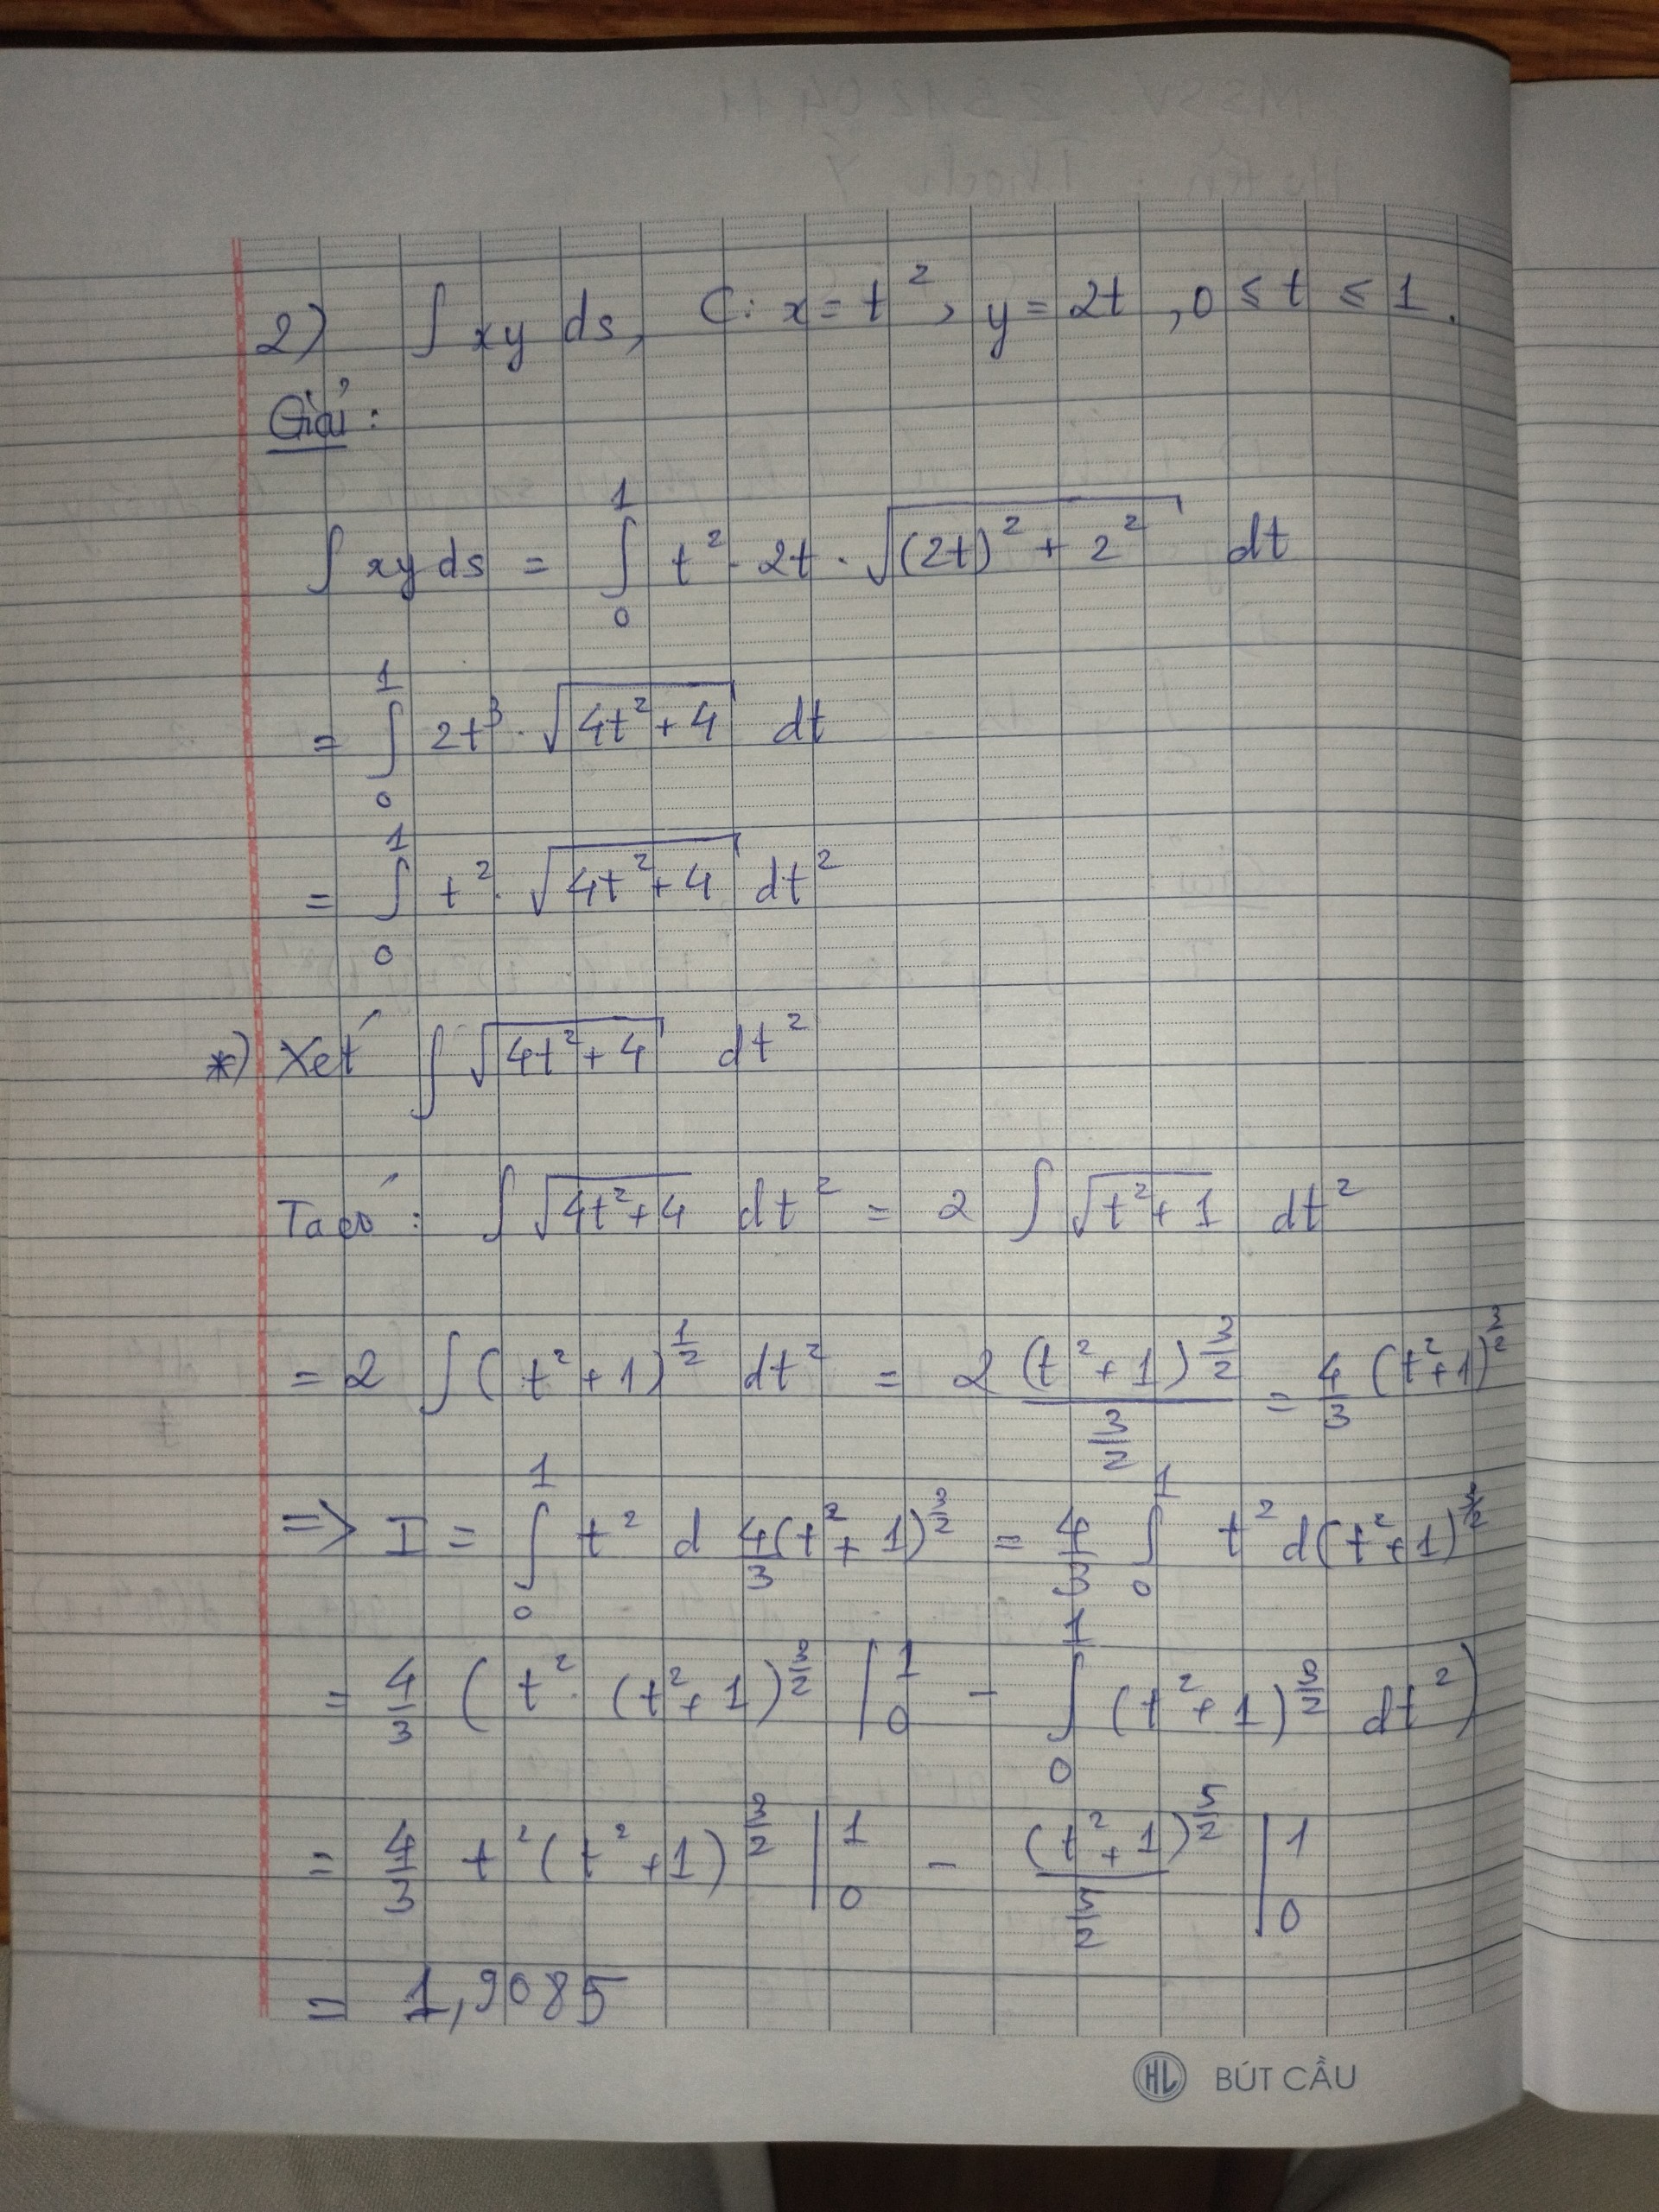 2) ∫ xy ds, C: x = t², y = 2t, 0 ≤ t ≤ 1.
Giải:
∫ xy ds = ∫₀¹ t² · 2t · √((2t)² + 2²) dt
= ∫₀¹ 2t³ · √(4t² + 4) dt
= ∫₀¹ t² · √(4t² + 4) dt²
*) Xét ∫ √(4t² + 4) dt²
Ta có: ∫ √(4t² + 4) dt² = 2 ∫ √(t² + 1) dt²
= 2 ∫ (t² + 1)^(1/2) dt² = 2 (t² + 1)^(3/2) / (3/2) = 4/3 (t² + 1)^(3/2)
=> I = ∫₀¹ t² d 4/3 (t² + 1)^(3/2) = 4/3 ∫₀¹ t² d(t² + 1)^(3/2)
= 4/3 ( t² · (t² + 1)^(3/2) |₀¹ - ∫₀¹ (t² + 1)^(3/2) dt² )
= 4/3 t² (t² + 1)^(3/2) |₀¹ - (t² + 1)^(5/2) / (5/2) |₀¹
= 1,9085
HL BÚT CẦU